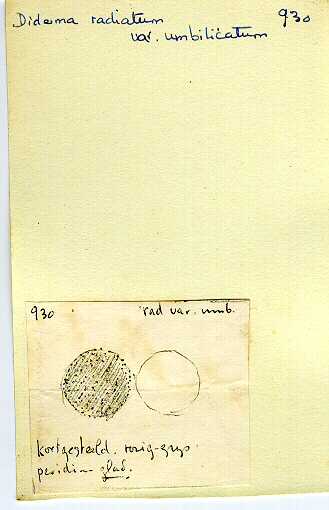 Diderma radiatum 930
var. umbilicatum
930 rad var. umb.
kortgesteeld. rozig-grijs
peridium glad.